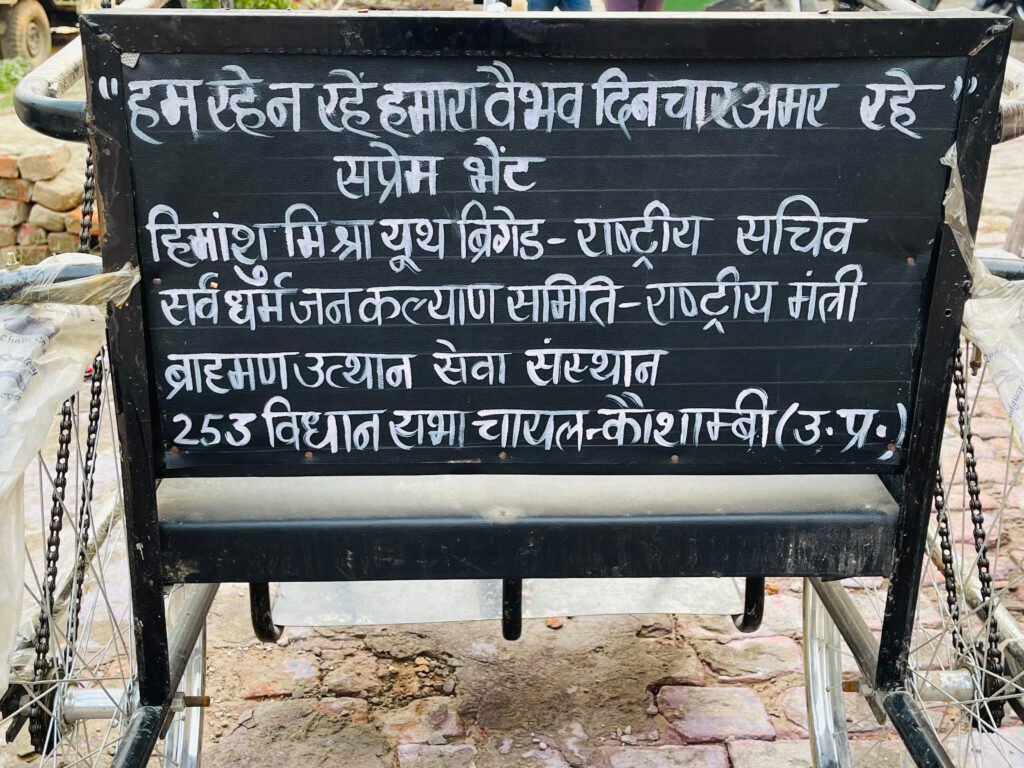 "हम रहे न रहें हमारा वैभव दिन चार अमर रहे"
सप्रेम भेंट
हिमांशु मिश्रा यूथ ब्रिगेड - राष्ट्रीय सचिव
सर्व धर्म जन कल्याण समिति - राष्ट्रीय मंत्री
ब्राहमण उत्थान सेवा संस्थान
253 विधान सभा चायल - कौशाम्बी (उ.प्र.)